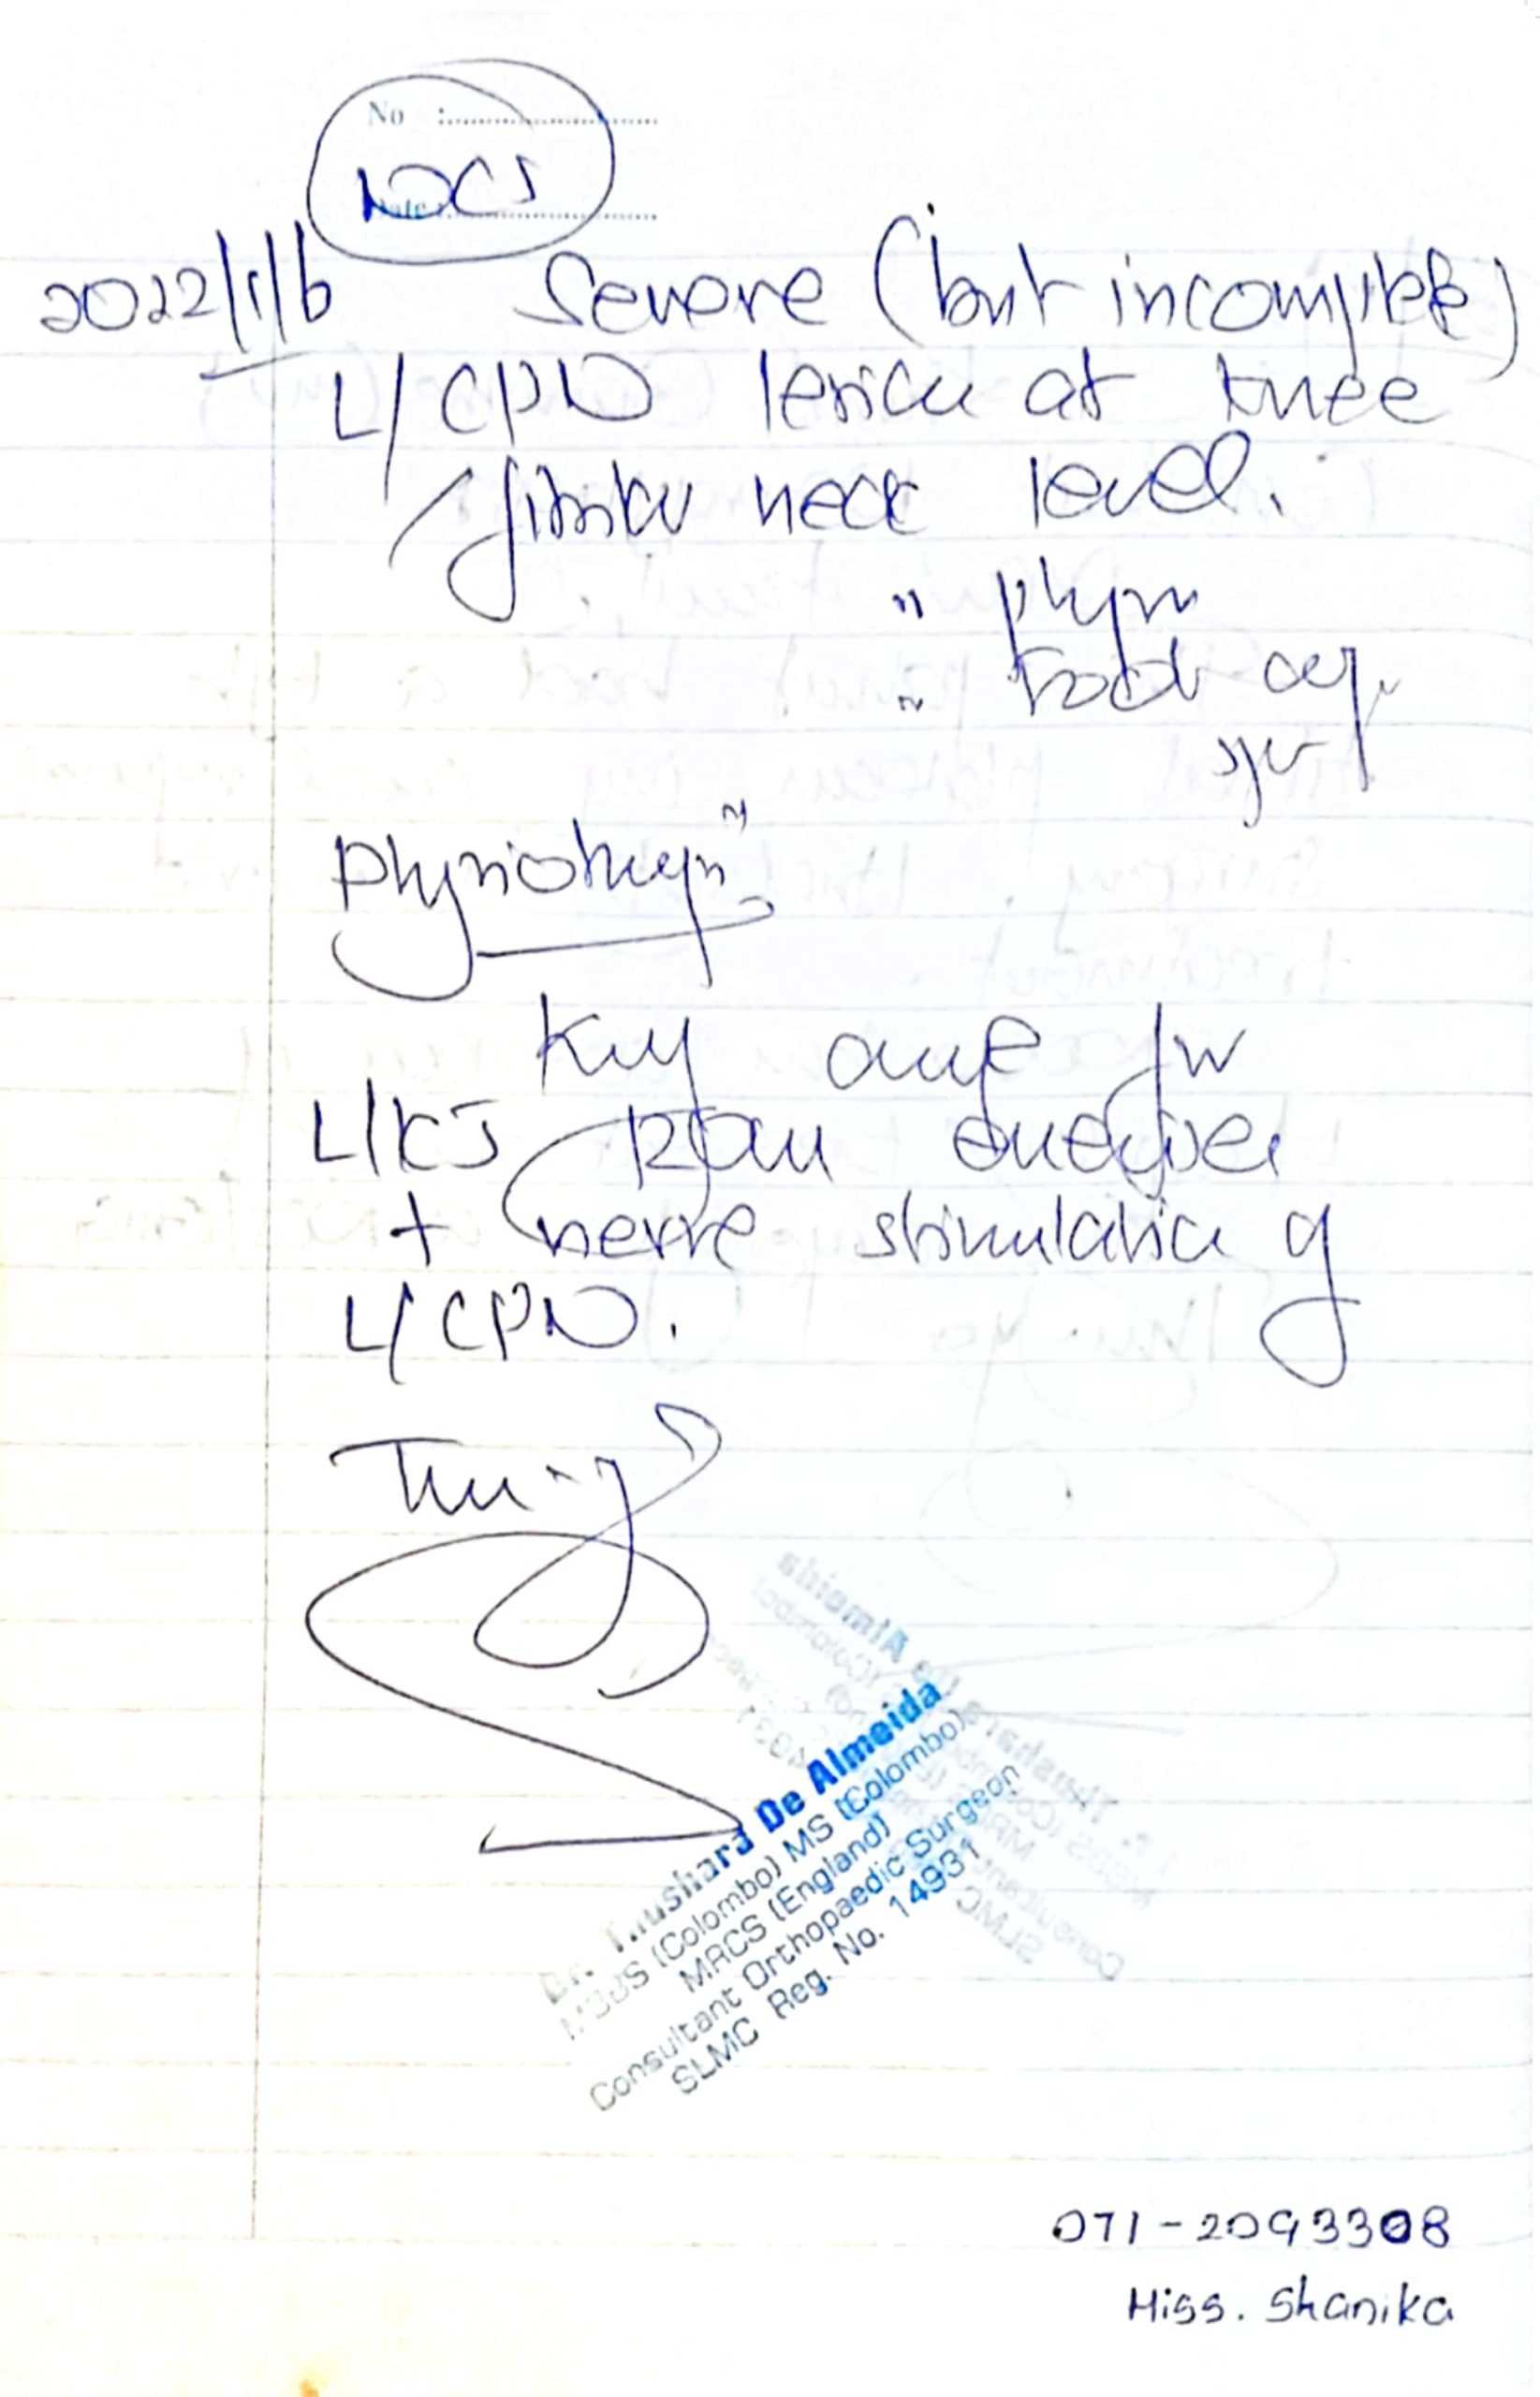 No :
Date :
NCS
2022/1/6 Severe (but incomplete)
L/ CPN lesion at knee
/ fibular neck level.
" Physio
" Food
Physiotherapist
Kindly arrange for
L/KJ ROM exercises
+ nerve stimulation of
L/ CPN.
Dr. Thushara De Almeida
MBBS (Colombo) MS (Colombo)
MRCS (England)
Consultant Orthopaedic Surgeon
SLMC Reg. No. 14931
071-2093308
Miss. Shanika